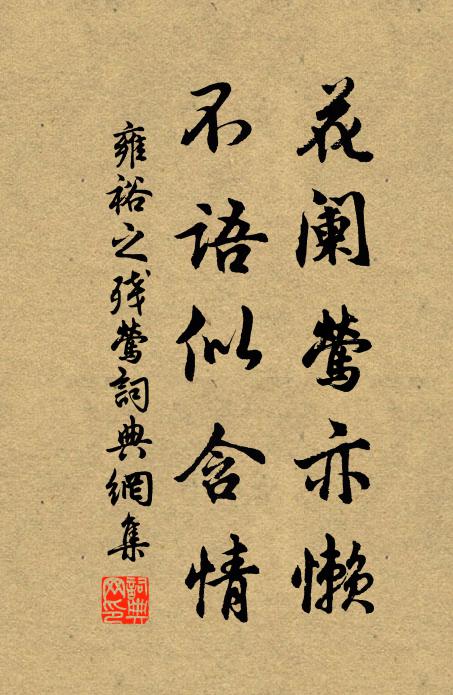 花阑莺亦懒
不语似含情
雍裕之残莺詞典網集
詞典网印